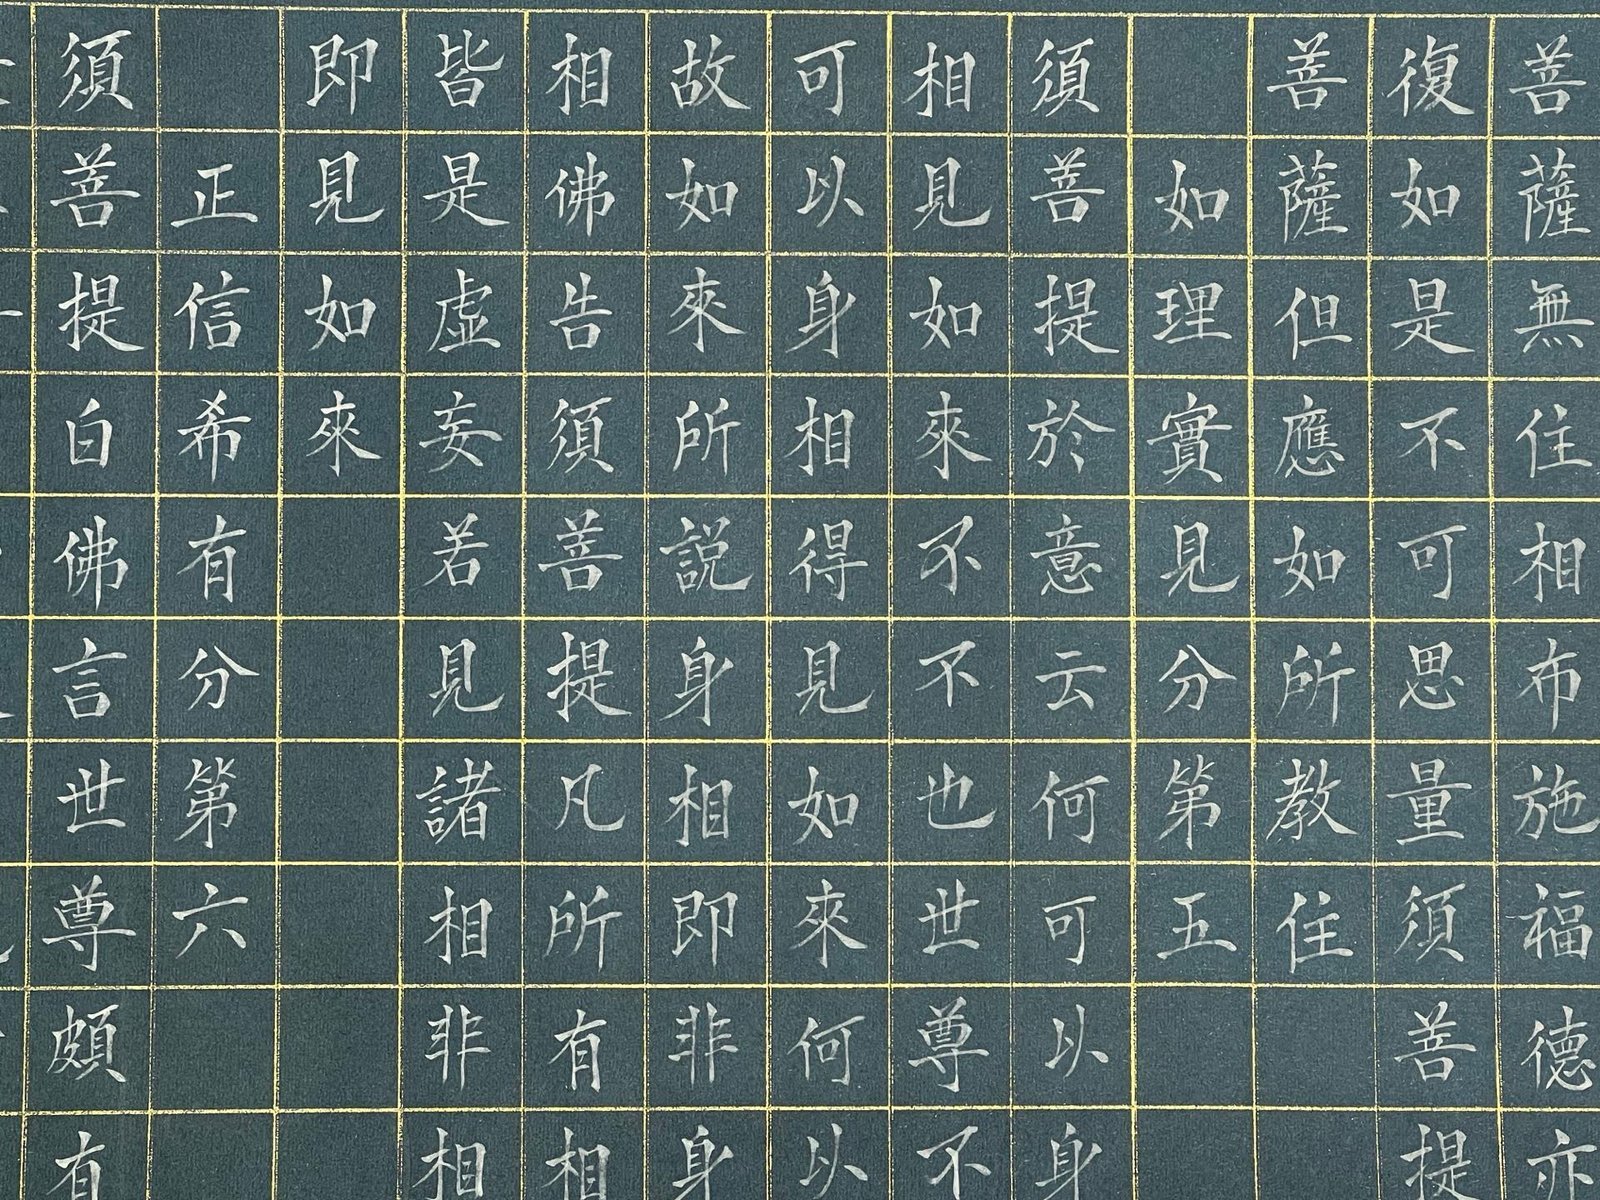 菩薩無住相布施福德亦
復如是不可思量須菩提
菩薩但應如所教住
如理實見分第五
須菩提於意云何可以身
相見如來不不也世尊不
可以身相得見如來何以
故如來所說身相即非身
相佛告須菩提凡所有相
皆是虛妄若見諸相非相
即見如來
正信希有分第六
須菩提白佛言世尊頗有